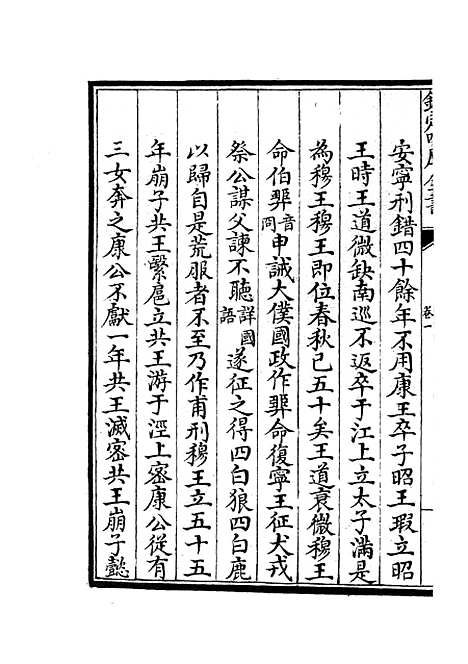 欽定四庫全書
卷一
安寧刑錯四十餘年不用康王卒子昭王瑕立昭
王時王道微缺南巡不返卒于江上立太子滿是
為穆王穆王即位春秋已五十矣王道衰微穆王
命伯臩音同申誡大僕國政作臩命復寧王征犬戎
祭公謀父諫不聽詳國語遂征之得四白狼四白鹿
以歸自是荒服者不至乃作甫刑穆王立五十五
年崩子共王繄扈立共王游于涇上密康公從有
三女奔之康公不獻一年共王滅密共王崩子懿